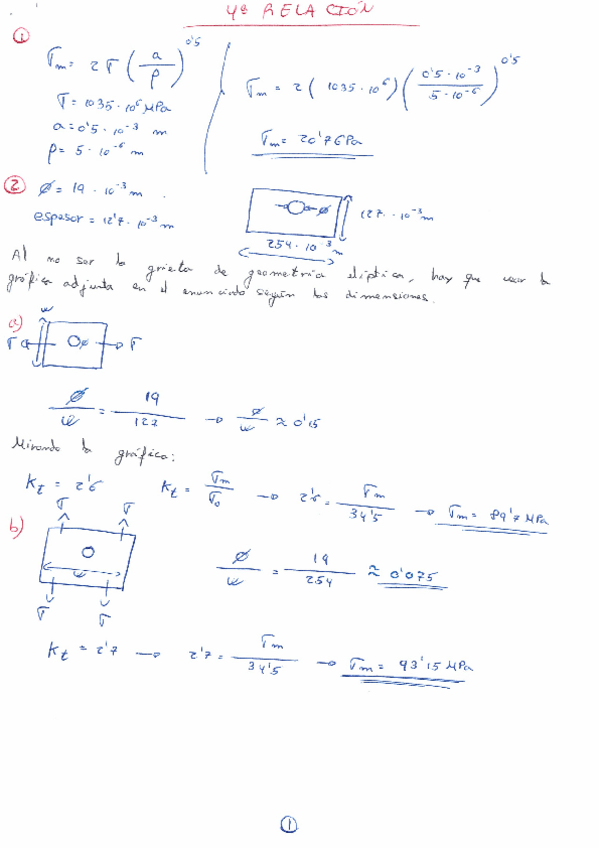 4ª RELACIÓN
①
σm = 2 σ (a/ρ)^0'5
σ = 1035 · 10^6 MPa
a = 0'5 · 10^-3 m
ρ = 5 · 10^-6 m
σm = 2 (1035 · 10^6) (0'5 · 10^-3 / 5 · 10^-6)^0'5
σm = 20'7 GPa
② ø = 19 · 10^-3 m
espesor = 12'7 · 10^-3 m
ø
127 · 10^-3 m
254 · 10^-3 m
Al no ser la grieta de geometría elíptica, hay que usar la
gráfica adjunta en el enunciado según las dimensiones.
a)
w
σ ø σ
ø/w = 19/127 → ø/w ≈ 0'15
Mirando la gráfica:
Kt = 2'6 Kt = σm/σ0 → 2'6 = σm/34'5 → σm = 89'7 MPa
b)
σ σ
w
σ σ
ø/w = 19/254 ≈ 0'075
Kt = 2'7 → 2'7 = σm/34'5 → σm = 93'15 MPa
①